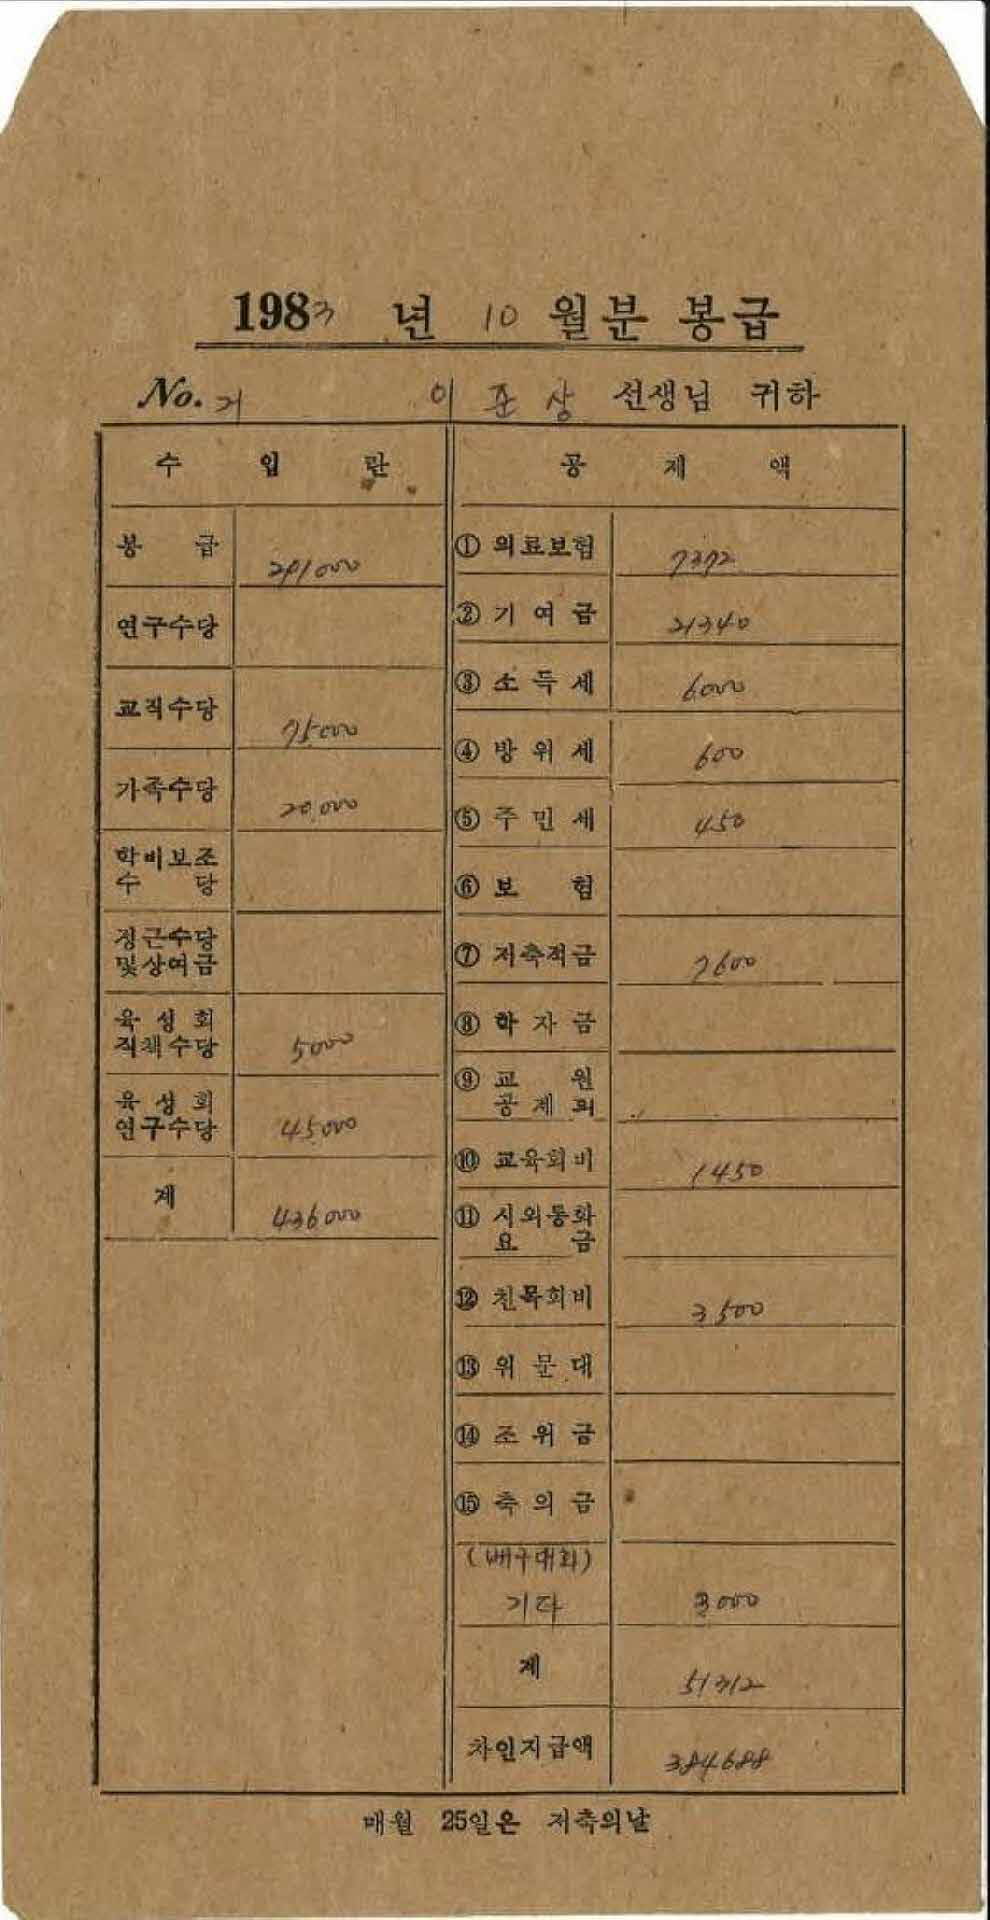 1983 년 10 월분 봉급
No. 21 이 준 상 선생님 귀하
수 입 란
봉 급 291000
연구수당
교직수당 75000
가족수당 20,000
학비보조
수 당
정근수당
및상여금
육 성 회
직책수당 5000
육 성 회
연구수당 45000
계 436000
공 제 액
① 의료보험 7372
② 기 여 금 21340
③ 소 득 세 6000
④ 방 위 세 600
⑤ 주 민 세 450
⑥ 보 험
⑦ 저축적금 7600
⑧ 학 자 금
⑨ 교 원
공 제 회
⑩ 교육회비 1450
⑪ 시외통화
요 금
⑫ 친목회비 3500
⑬ 위 문 대
⑭ 조 위 금
⑮ 축 의 금
(배구대회)
기타 3000
계 51312
차인지급액 384688
매월 25일은 저축의날